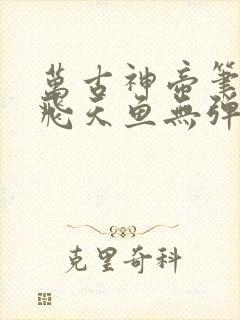 萬古神帝筆
飛天魚無彈
克里奇科